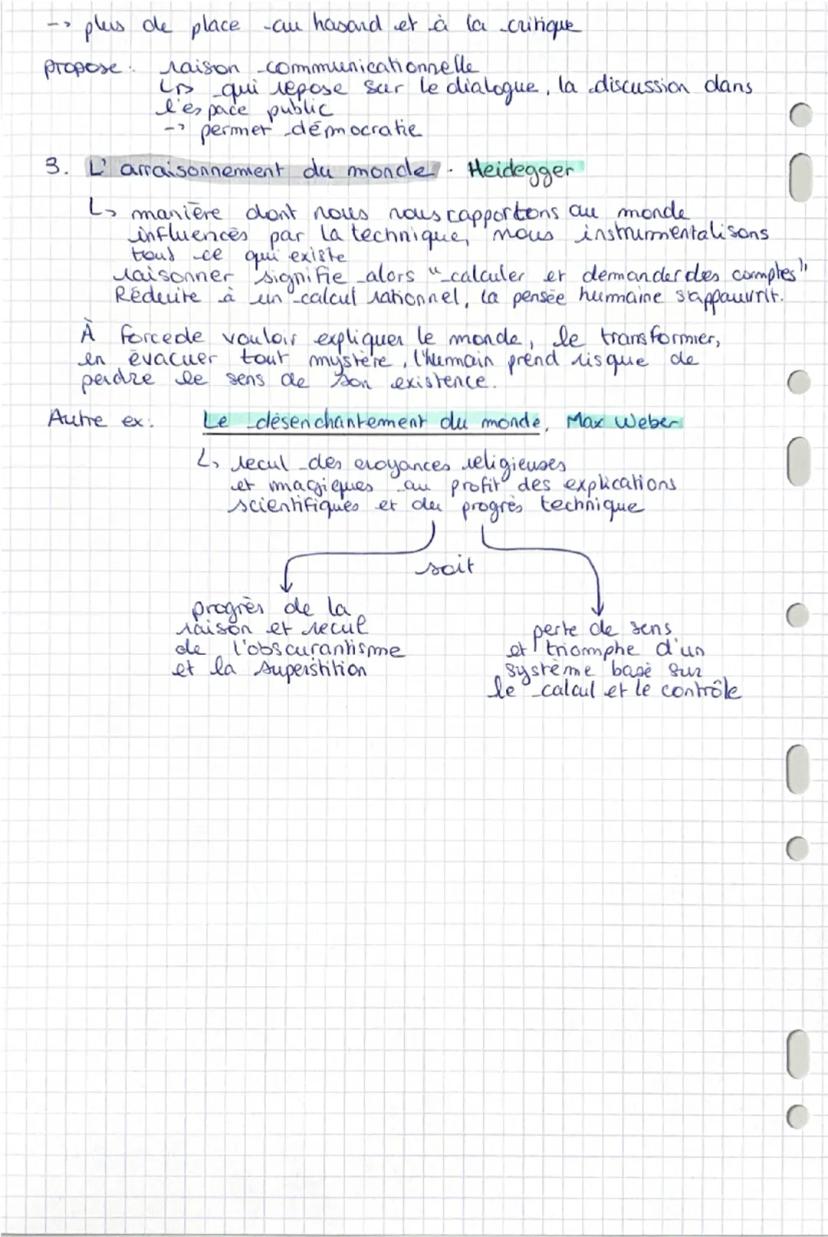 -> plus de place au hasard et à la critique
propose : raison communicationnelle
↳ qui repose sur le dialogue, la discussion dans
l'espace public
-> permet démocratie
3. L'arraisonnement du monde. Heidegger
↳ manière dont nous nous rapportons au monde
influencés par la technique, nous instrumentalisons
tout ce qui existe
raisonner signifie alors "calculer et demander des comptes"
Réduite à un calcul rationnel, la pensée humaine s'appauvrit.
À force de vouloir expliquer le monde, le transformer,
en évacuer tout mystère, l'humain prend risque de
perdre le sens de son existence.
Autre ex : Le désenchantement du monde, Max Weber
↳ recul des croyances religieuses
et magiques au profit des explications
scientifiques et du progrès technique
soit
progrès de la
raison et recul
de l'obscurantisme
et la superstition
perte de sens
et triomphe d'un
système basé sur
le calcul et le contrôle